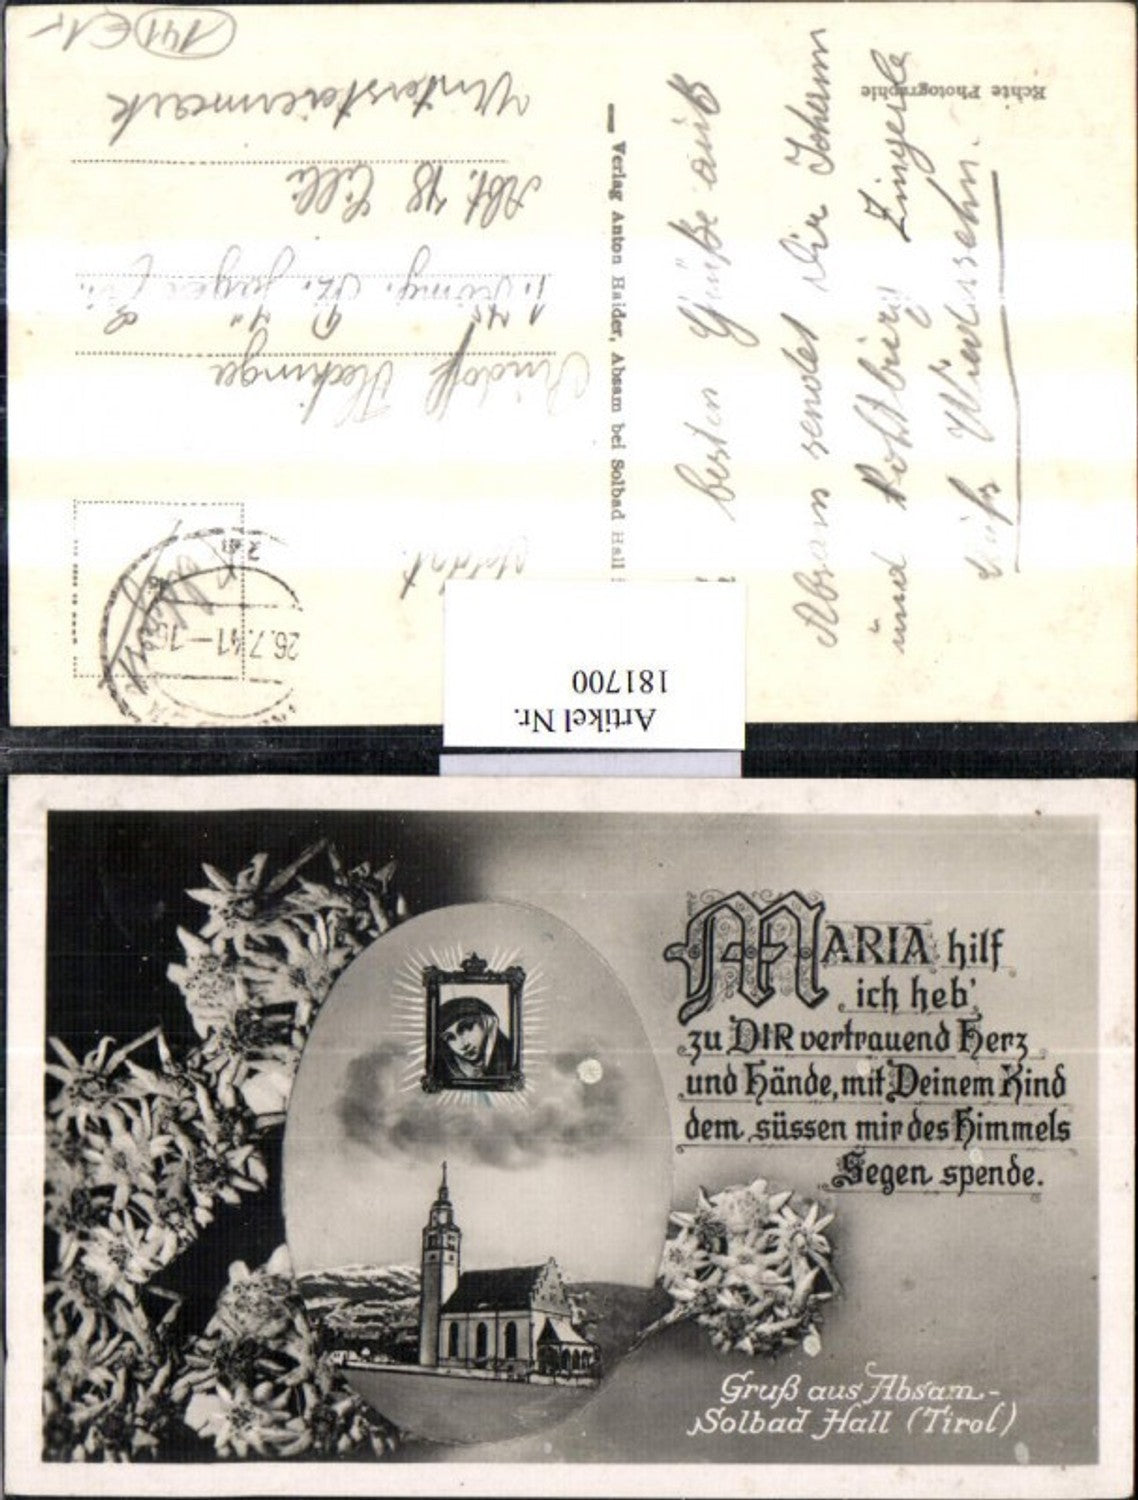 141 €1,-
Echte Photographie
Verlag Anton Haider, Absam bei Solbad Hall
besten Grüße aus
Absam sendet dir Johann
und Zingerle
Auf's Wiedersehn.
Soldat
Rudolf
Abt. 48 Cilli
Untersteiermark
26.7.41–15
Artikel Nr.
181700
MARIA hilf
ich heb'
zu DIR vertrauend Herz
und Hände, mit Deinem Kind
dem süssen mir des Himmels
Segen spende.
Gruß aus Absam-
Solbad Hall (Tirol)